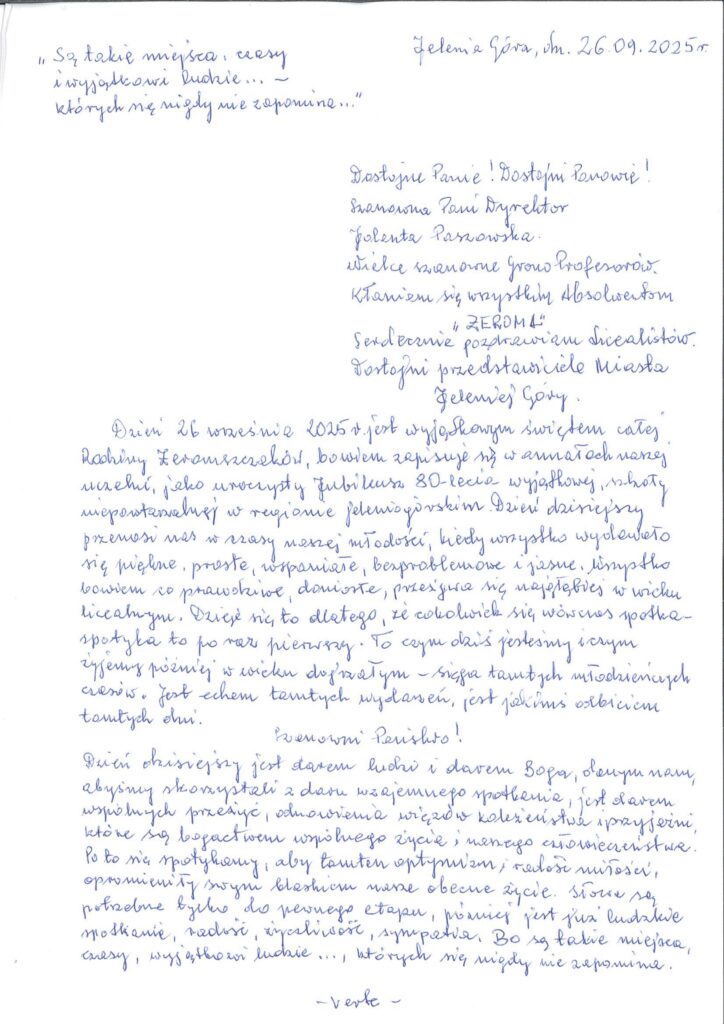 "Są takie miejsca, czasy
i wyjątkowi ludzie... –
których się nigdy nie zapomina..."
Jelenia Góra, dn. 26.09.2025r.
Dostojne Panie! Dostojni Panowie!
Szanowna Pani Dyrektor
Jolanta Paszowska.
Wielce szanowne Grono Profesorów.
Kłaniam się wszystkim Absolwentom
"ŻEROMA"
Serdecznie pozdrawiam Licealistów.
Dostojni przedstawiciele Miasta
Jeleniej Góry.
Dzień 26 września 2025 r. jest wyjątkowym świętem całej
Rodziny Żeromszczaków, bowiem zapisuje się w annałach naszej
uczelni, jako uroczysty Jubileusz 80-lecia wyjątkowej, szkoły
niepowtarzalnej w regionie jeleniogórskim. Dzień dzisiejszy
przenosi nas w czasy naszej młodości, kiedy wszystko wydawało
się piękne, proste, wspaniałe, bezproblemowe i jasne. Wszystko
bowiem co prawdziwe, doniosłe, przeżywa się najgłębiej w wieku
licealnym. Dzieje się to dlatego, że cokolwiek się wówczas spotka–
spotyka to po raz pierwszy. To czym dziś jesteśmy i czym
żyjemy później w wieku dojrzałym – sięga tamtych młodzieńczych
czasów. Jest echem tamtych wydarzeń, jest jakimś odbiciem
tamtych dni.
Szanowni Państwo!
Dzień dzisiejszy jest darem ludzi i darem Boga, danym nam,
abyśmy skorzystali z daru wzajemnego spotkania, jest darem
wspólnych przeżyć, odnowienia więzów koleżeństwa i przyjaźni,
które są bogactwem wspólnego życia i naszego człowieczeństwa.
Po to się spotykamy, aby tamten optymizm, i radość miłości,
opromieniły swym blaskiem nasze obecne życie. Słowa są
potrzebne tylko do pewnego etapu, później jest już ludzkie
spotkanie, radość, życzliwość, sympatia. Bo są takie miejsca,
czasy, wyjątkowi ludzie..., których się nigdy nie zapomina.
– verte –